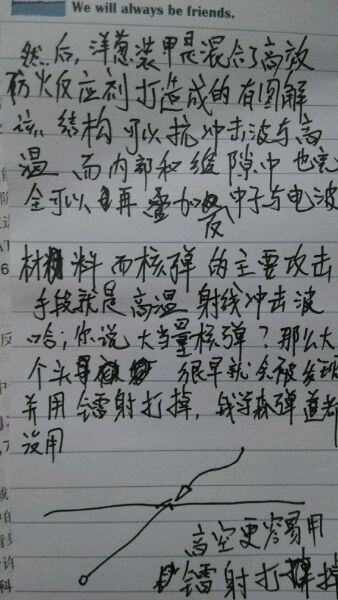 We will always be friends.
然后，洋葱装甲是混合了高效
防火反应剂打造成的有图解
结构可以抗冲击波与高
温 而内部和缝隙中也完
全可以再叠加反中子与电波
材料 而核弹的主要攻击
手段就是高温 射线冲击波
哈；你说大当量核弹？那么大
个头 很早就会被发现
并用镭射打掉，钱学森弹道都
没用
高空更容易用
镭射打掉